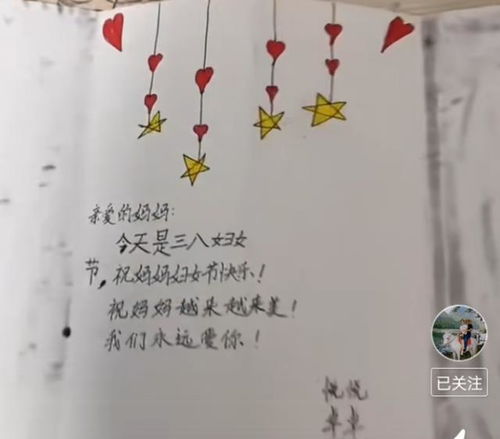 亲爱的妈妈:
今天是三八妇女
节,祝妈妈妇女节快乐!
祝妈妈越来越来美!
我们永远爱你!
悦悦
卓卓
已关注